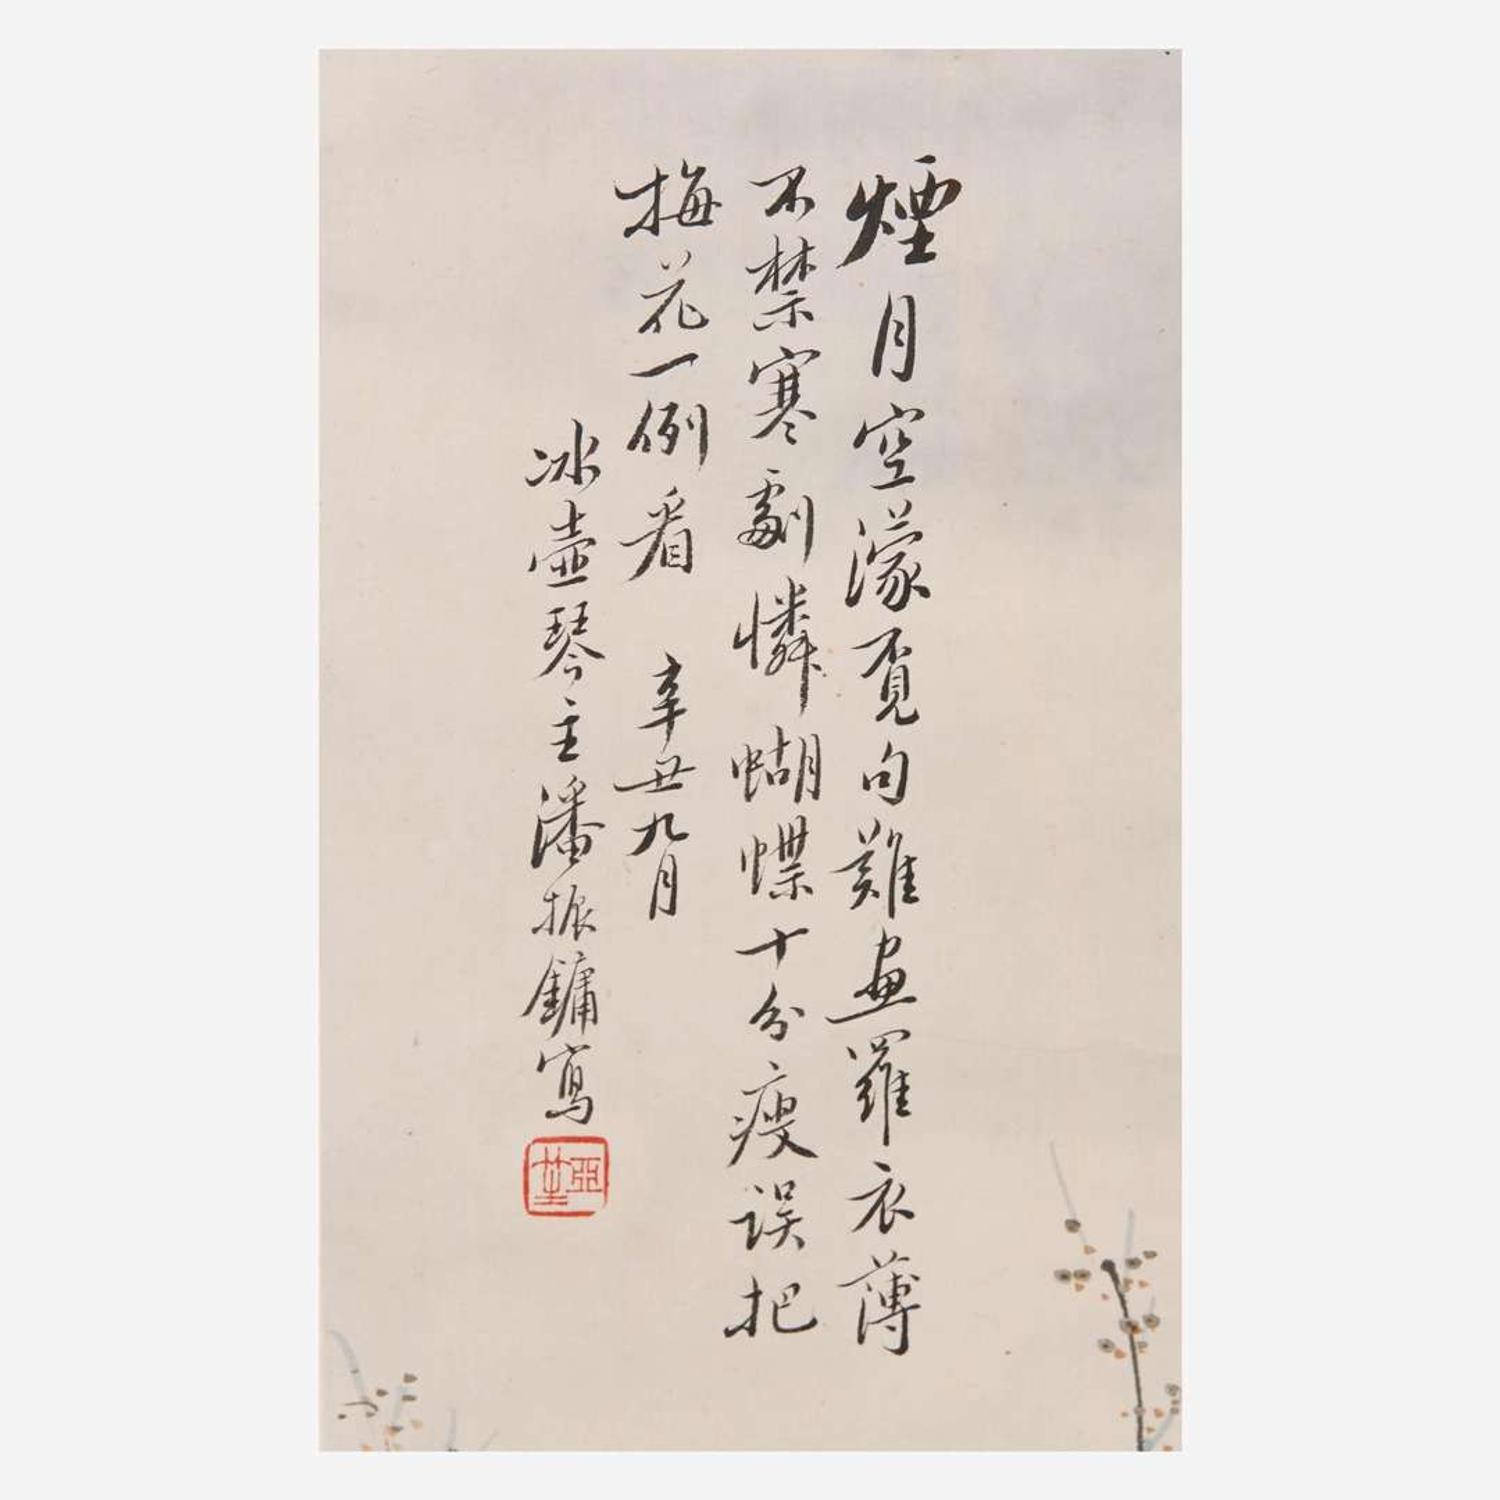 煙月空濛覓句難畫羅衣薄
不禁寒劚憐蝴蝶十分瘦誤把
梅花一例看 辛丑九月
冰壺琴主潘振鏞寫
亞笙